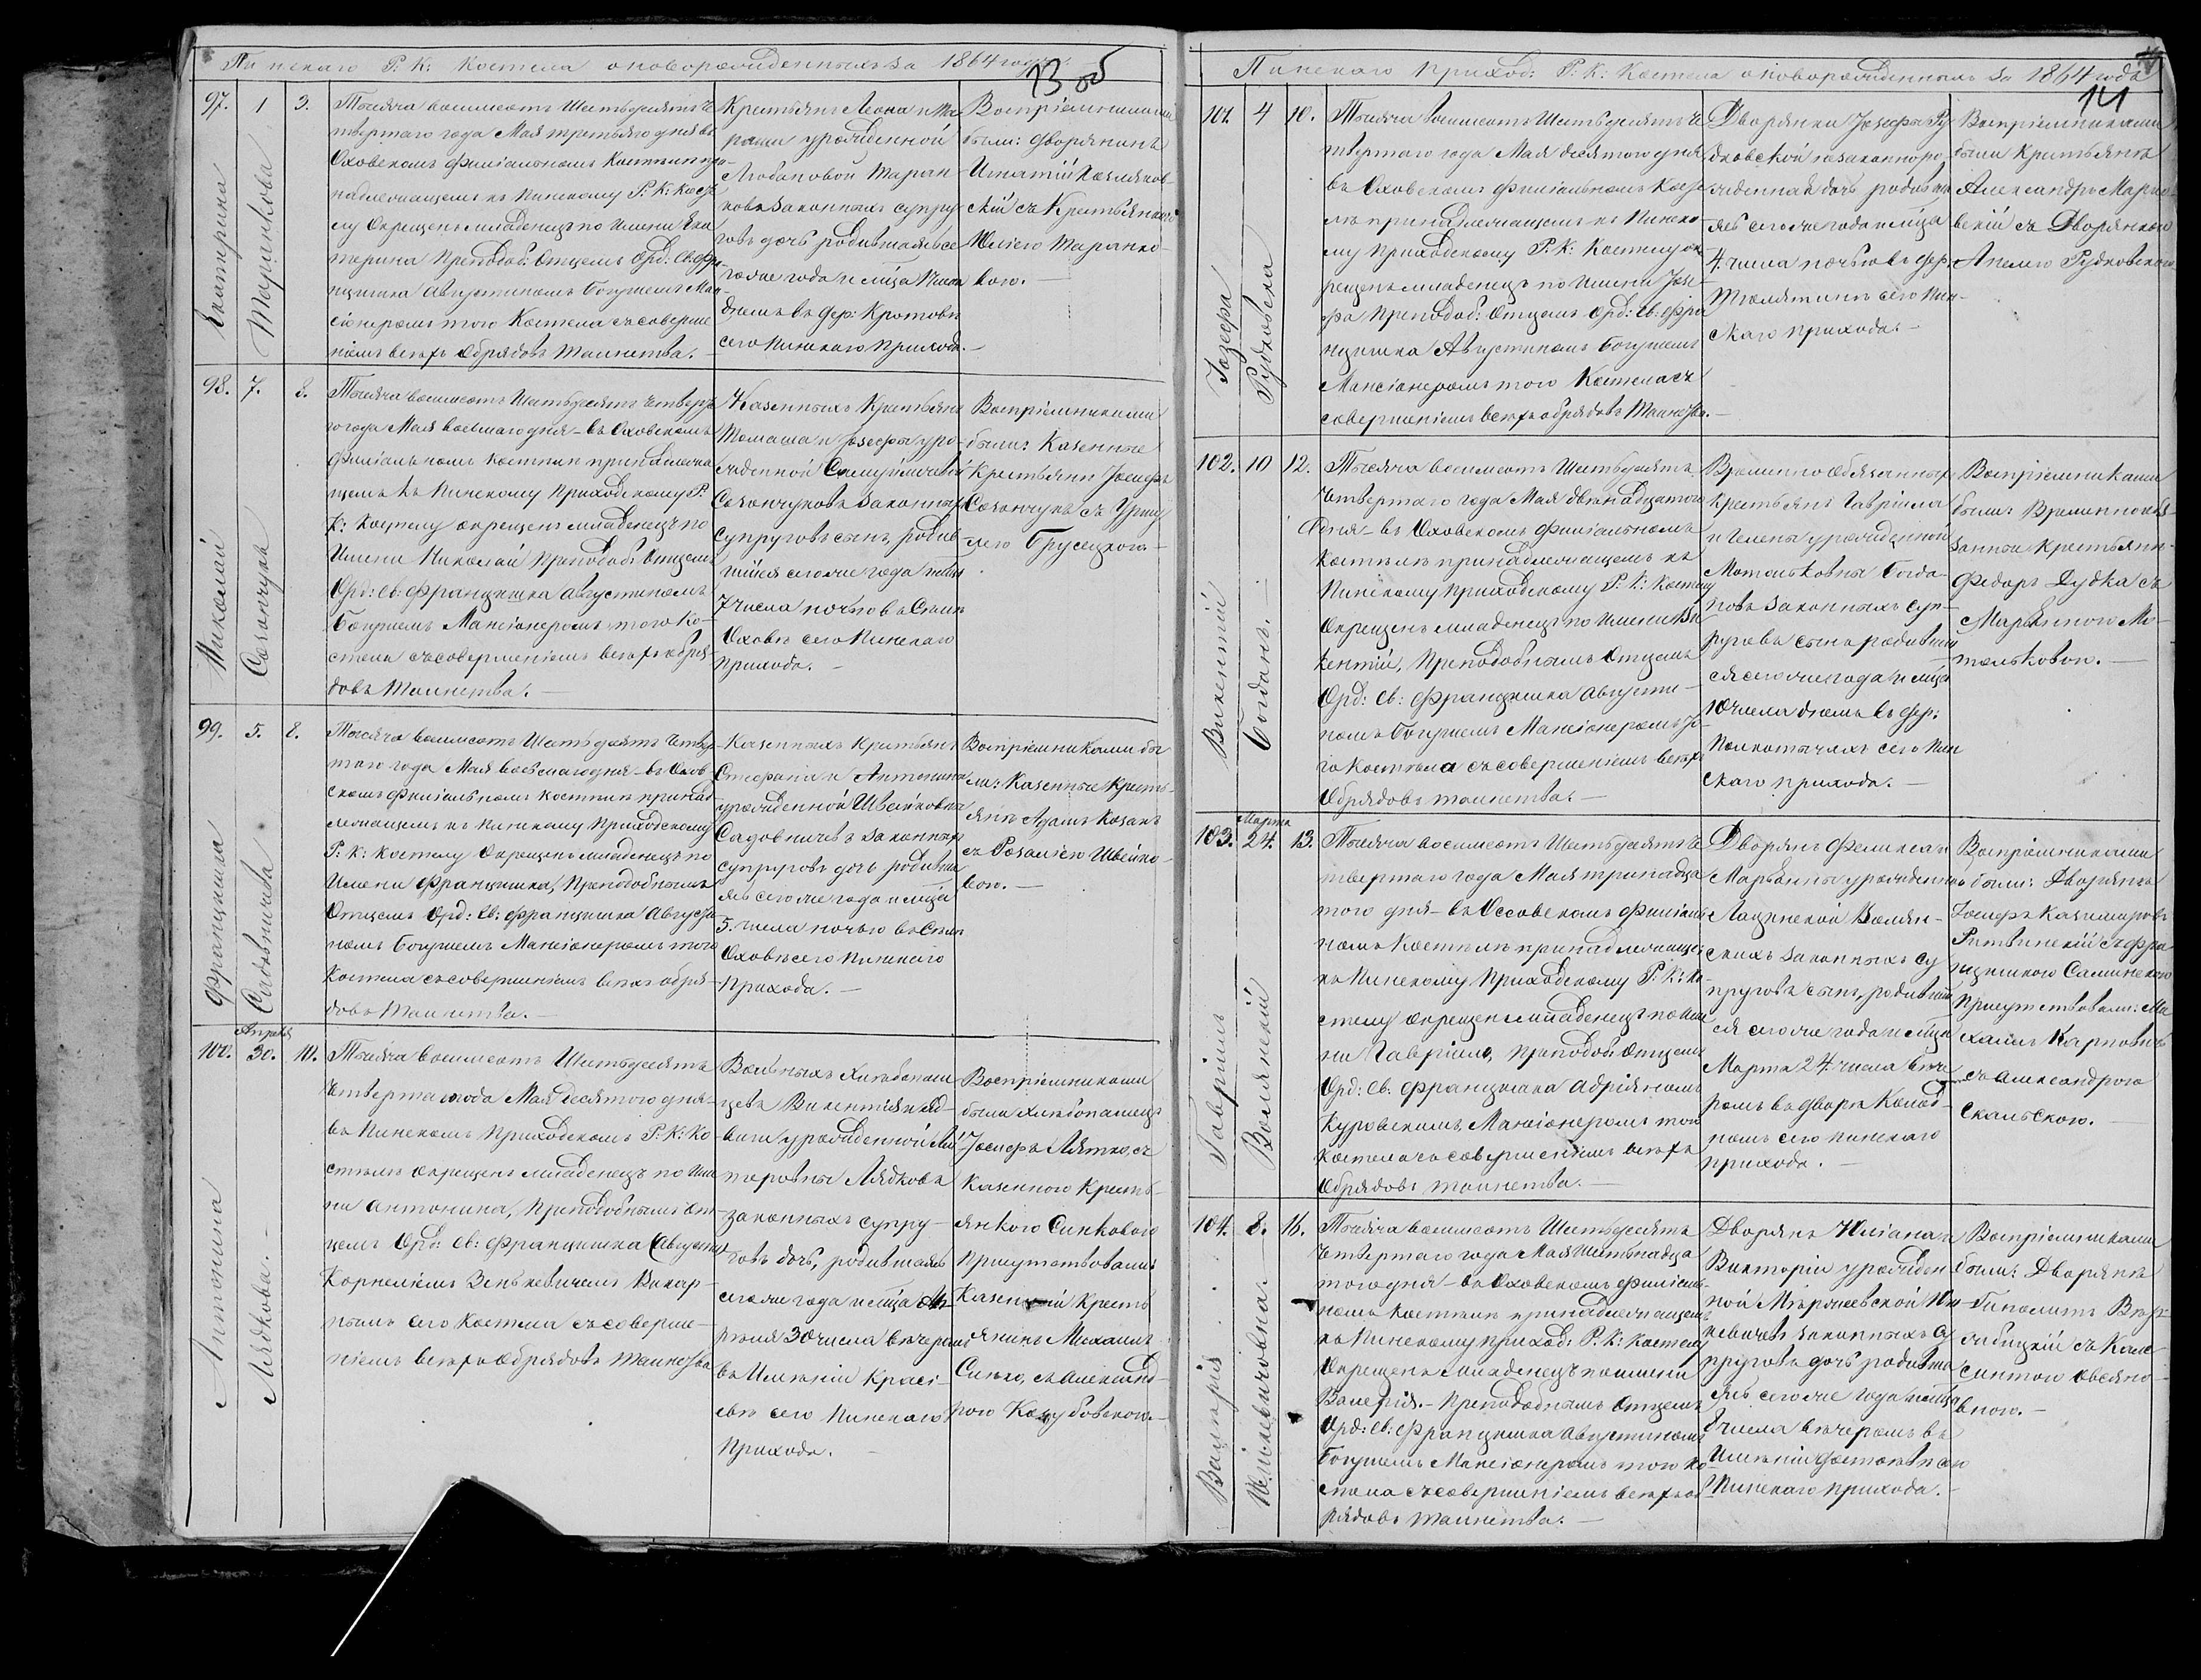 Пинскаго Р: К: Костела о новорожденныхъ за 1864 годъ
13 об
97. 1 3.
Екатерина
Таранкова
Тысяча восемсотъ Шестьдесятъ Че
твертаго года Мая третьяго дня въ
Оховскомъ филіальномъ Костелѣ при-
надлежащемъ къ Пинскому Р: К: Косте
лу Окрещенъ младенецъ по Имени Ека
терина Преподоб: Отцемъ Орд: Св: Фра-
нцишка Августиномъ Богушемъ Ман-
сіонеромъ того Костела съ соверше
ніемъ всѣхъ Обрядовъ Таинства. —
Крестьянъ Леона и Ма
урожденной
Таран
ковъ законныхъ супру
говъ дочь родившаяся се
гоже года и мѣсяца 1 числа
днемъ въ дер: Кротовѣ
сего Пинскаго Прихода. —
Воспріемниками
были: Дворянинъ
Игнатій Козляков-
скій съ Крестьянкою
Юліею Таранко-
вою. —
98. 7. 8.
Николай
Созончукъ
Тысяча восемсотъ Шестьдесятъ Четверта
го года Мая восьмаго дня — въ Оховскомъ
филіальномъ Костелѣ принадлежа
щемъ къ Пинскому Приходскому Р:
К: Костелу окрещенъ младенецъ по
Имени Николай Преподоб: Отцемъ
Орд: Св: Францишка Августиномъ
Богушемъ Мансіонеромъ того Ко-
стела съ совершеніемъ всѣхъ обря-
довъ Таинства. —
Казенныхъ Крестьянъ
Томаша и Іозефы уро-
жденной
Созончуковъ законныхъ
супруговъ сынъ, родив
шійся сегоже года и мѣсяца
7 числа ночью въ Селѣ
Оховѣ сего Пинскаго
Прихода. —
Воспріемниками
были: Казенные
Крестьяне Іосифъ
Созончукъ съ Уршу
лею Брусецкою. —
99. 5. 8.
Францишка
Садовничева
Тысяча восемсотъ Шестьдесятъ Четвер
таго года Мая восьмаго дня — въ Охов
скомъ филіальномъ Костелѣ принад-
лежащемъ къ Пинскому Приходскому
Р: К: Костелу Окрещенъ младенецъ по
Имени Францишка, Преподобнымъ
Отцемъ Орд: Св: Францишка Августи
номъ Богушемъ Мансіонеромъ того
Костела съ совершеніемъ всѣхъ обря-
довъ Таинства. —
Казенныхъ Крестьянъ
Стефана и Антонины
урожденной Швейковны
Садовничевъ законныхъ
супруговъ дочь родивша
яся сегоже года и мѣсяца
5. числа ночью въ Селѣ
Оховѣ сего Пинскаго
Прихода. —
Воспріемниками бы
ли: Казенные Кресть-
яне Адамъ Козакъ
съ Розаліею Швейко-
вою. —
100. Апрѣля 30. 10.
Антонина
Лядкова. —
Тысяча восемсотъ Шестьдесятъ
Четвертаго года Мая десятого дня —
въ Пинскомъ Приходскомъ Р: К: Ко
стелѣ окрещенъ младенецъ по Име
ни Антонина, Преподобнымъ От-
цемъ Орд: Св: Францишка (Августи
Корнеліемъ Зенкевичемъ Викар-
нымъ сего Костела съ соверше-
ніемъ всѣхъ Обрядовъ Таинства
Вольныхъ хлѣбопаш-
цевъ Викентія и Яд-
виги урожденной
Лядковъ
законныхъ супру-
говъ дочь, родившаяся
сегоже года мѣсяца Ап-
рѣля 30 числа вечеромъ
въ Имѣніи
сего Пинскаго
Прихода. —
Воспріемниками
были хлѣбопашецъ
Іосифъ Лятко, съ
Казенною Кресть-
янкою Синковою
Присутствовали:
Казенный Кресть
янинъ Михаилъ
Синко, съ Александ-
рою
Пинскаго Приход: Р: К: Костела о новорожденныхъ за 1864 годъ
14
101. 4 10.
Іозефа
Рудковска
Тысяча восемсотъ Шестьдесятъ Че
твертаго года Мая десятого дня
въ Оховскомъ филіальномъ Косте
лѣ принадлежащемъ къ Пинско
му Приходскому Р: К: Костелу ок
рещенъ младенецъ по Имени Іозе-
фа Преподоб: Отцемъ Орд: Св: Фра
нцишка Августиномъ Богушемъ
Мансіонеромъ того Костела съ
совершеніемъ всѣхъ обрядовъ Таинства. —
Дворянки Іозефы Ру
дковской незаконноро-
жденная дочь родивша
яся сегоже года и мѣсяца
4. числа ночью въ дер:
сего Пин-
скаго прихода. —
Воспріемниками
были Крестьянинъ
Александръ
съ Дворянкою
Анелею Рудковскою
102. 10 12.
Викентій
Богданъ. —
Тысяча восемсотъ Шестьдесятъ
Четвертаго года Мая двѣнадцатаго
дня — въ Оховскомъ филіальномъ
Костелѣ принадлежащемъ къ
Пинскому Приходскому Р: К: Костелу
Окрещенъ младенецъ по Имени Ви
кентій, Преподобнымъ Отцемъ
Орд: Св: Францишка Августи-
номъ Богушемъ Мансіонеромъ то-
го Костела съ совершеніемъ всѣхъ
Обрядовъ таинства. —
Временно Обязанныхъ
Крестьянъ Гавріила
и Гелены урожденной
Мотольковны Богда-
новъ законныхъ суп-
руговъ сынъ родивший
ся сегоже года и мѣсяца
10 числа днемъ въ дер:
сего Пин
скаго прихода. —
Воспріемниками
были: Временно обя-
занные Крестьяне
Федоръ Дудка съ
Марьянною Мо-
тольковою. —
103. Марта 24. 13.
Гавріилъ
Волянскій
Тысяча восемсотъ Шестьдесятъ Че
твертаго года Мая тринадца
того дня — въ Оссовскомъ филіаль
номъ Костелѣ принадлежаще:
къ Пинскому Приходскому Р: К: Ко-
стелу окрещенъ младенецъ по Име
ни Гавріилъ, Преподоб: Отцемъ
Орд: Св: Францишка Адріяномъ
Куровскимъ Мансіонеромъ того
Костела съ совершеніемъ всѣхъ
Обрядовъ таинства. —
Дворянъ Феликса и
Марьянны урожденной
Лащинской Волян-
скихъ законныхъ су
пруговъ сынъ, родивший
ся сегоже года и мѣсяца
Марта 24 числа вече
ромъ въ дворѣ
сего Пинскаго
прихода. —
Воспріемниками
были: Дворяне
Іосифъ Казимировъ
съ Фра
нцишкою
Присутствовали: Ми
хаилъ Карповичъ
съ Александрою
Скальскою. —
104. 8. 16.
Валерія
Юшкевичовна. —
Тысяча восемсотъ Шестьдесятъ
Четвертаго года Мая Шестнадца
того дня — въ Оховскомъ филіаль-
номъ Костелѣ принадлежащемъ
къ Пинскому Приход: Р: К: Костелу
Окрещенъ младенецъ по имени
Валерія. — Преподобнымъ Отцемъ
Орд: Св: Францишка Августиномъ
Богушемъ Мансіонеромъ того Ко-
стела съ совершеніемъ всѣхъ об-
рядовъ таинства. —
Дворянъ Юліана и
Викторіи урожден
ной
законныхъ су
пруговъ дочь родивша
яся сегоже года и мѣсяца
8 числа вечеромъ въ
Имѣніи сего
Пинскаго прихода. —
Воспріемниками
были: Дворяне
Ипполитъ
съ